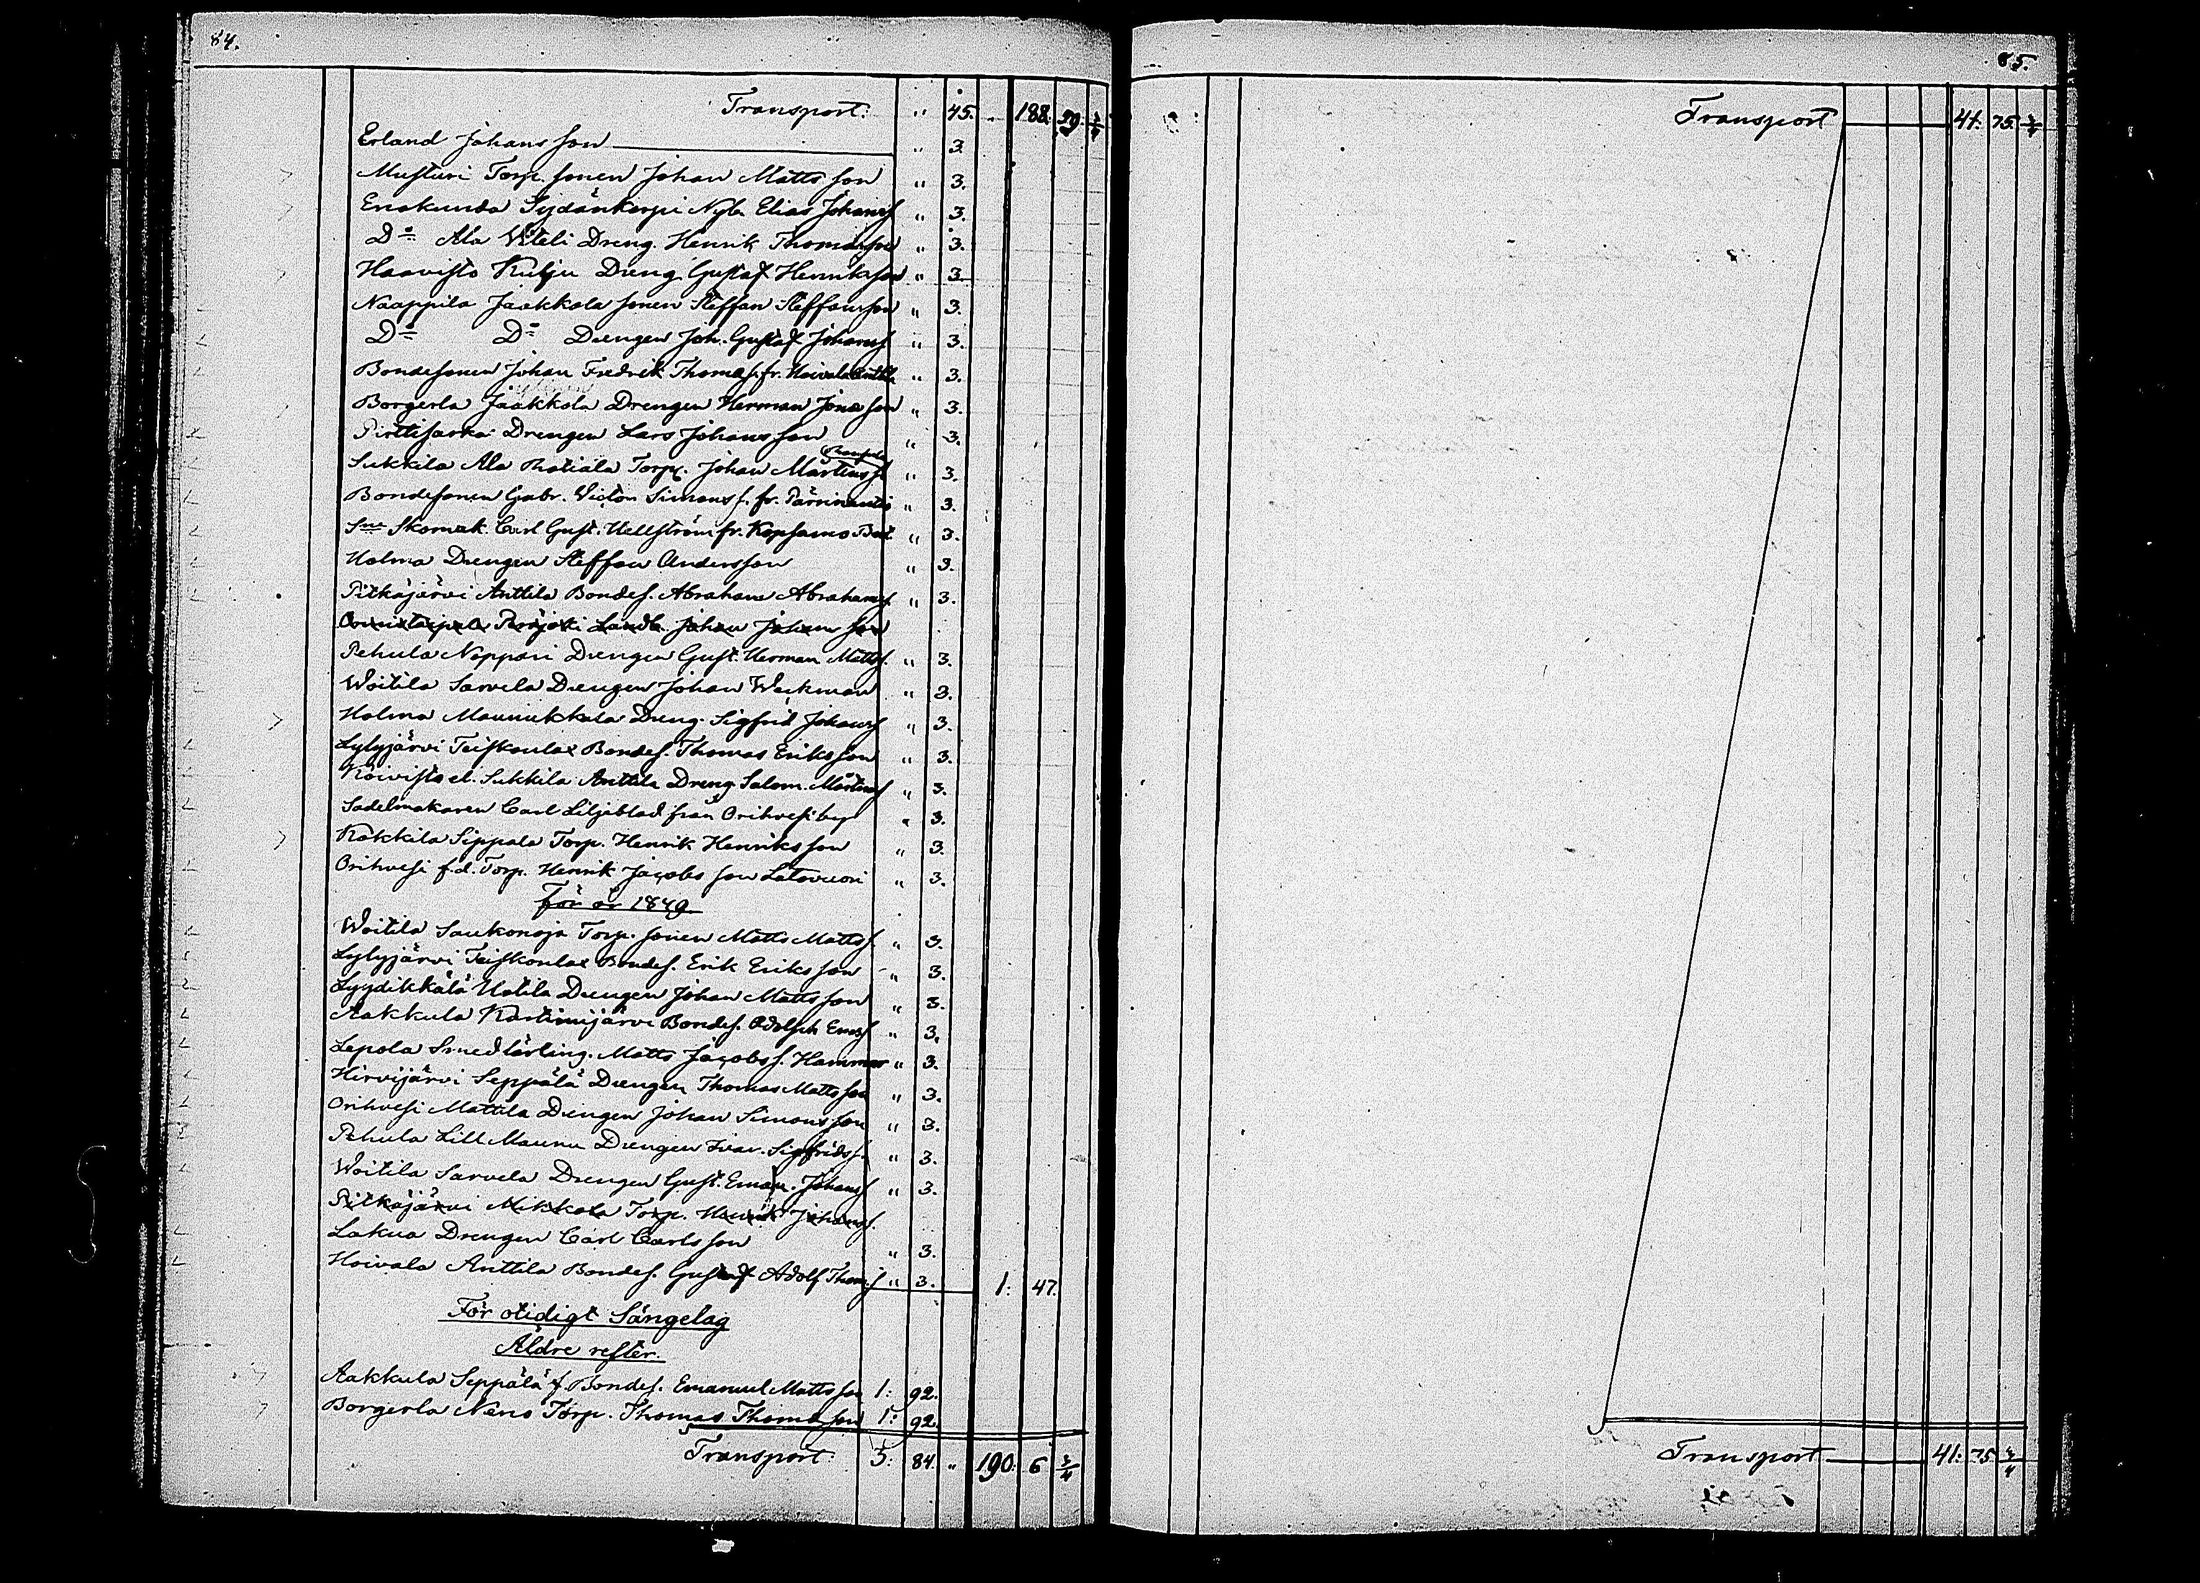 84.
Transport: " 45. " 188. 59. 3/4
Erland Johansson " 3.
Musturi Torp. sonen Johan Mattsson " 3.
Enokunda Sydänkorpi Nyb. Elias Johanss " 3.
Do Ala Viteli Dreng. Henrik Thomasson " 3.
Haavisto Kulju Dreng. Gustaf Henriksson " 3.
Naappila Jaakkola sonen Steffan Steffansson " 3.
Do Do Drengen Joh. Gustaf Johanss. " 3.
Bondesonen Johan Fredrik Thomas. fr. Hoivala Anttila " 3.
Borgerla Jaakkola Drengen Herman Jonasson " 3.
Pirttisarka Drengen Lars Johansson " 3.
Sukkila Ala Rotiala Torp. Johan Mårtenss. " 3.
Bondesonen Gabr. Victor Simonss. fr. Pärrinantti " 3.
Sne Skomak. Carl Gust. Hellström fr. Kopsamo Bat. " 3.
Holma Drengen Steffan Andersson " 3.
Pitkäjärvi Anttila Bondes. Abraham Abrahamss. " 3.
Onnistaipale Peräjoki Landb. Johan Johansson
Pehula Noppari Drengen Gust. Herman Mattss. " 3.
Woitila Sarvela Drengen Johan Weckman " 3.
Holma Maunukkala Dreng. Sigfrid Johanss " 3.
Lylyjärvi Teiskonlax Bondes. Thomas Eriksson " 3.
Koivisto el. Sukkila Anttila Dreng. Salom. Mårtenss " 3.
Sadelmakaren Carl Liljeblad från Orihvesi by " 3.
Kokkila Sippola Torp. Henrik Henriksson " 3.
Orihvesi f.d. Torp. Henrik Jacobsson Latovuori " 3.
För år 1849.
Woitila Saukonoja Torp. sonen Matts Mattss. " 3.
Lylyjärvi Teiskonlax Bondes. Erik Eriksson " 3.
Lyydikkälä Uotila Drengen Johan Mattsson " 3.
Aakkula Kortinijärvi Bondes. Adolph Emss " 3.
Lepola Smedlärling. Matts Jacobss. Hammar " 3.
Hirvijärvi Seppälä Drengen Thomas Mattsson " 3.
Orihvesi Mattila Drengen Johan Simonsson " 3.
Pehula Lill Maunu Drengen Ivar. Sigfridss. " 3.
Woitila Sarvela Drengen Gust. Eman. Johanss " 3.
Pitkäjärvi Mikkola Torp. Henrik Johanss.
Lakua Drengen Carl Carlsson " 3.
Hoivala Anttila Bondes. Gustaf Adolf Thomss " 3. 1: 47.
För otidigt Sängelag
Äldre rester.
Aakkula Seppälä f. Bondes. Emanuel Mattsson 1: 92.
Borgerla Neno Torp. Thomas Thomasson 1: 92.
Transport: 3: 84. " 190. 6 3/4
85.
Transport 41. 75. 3/4
Transport 41: 75 3/4